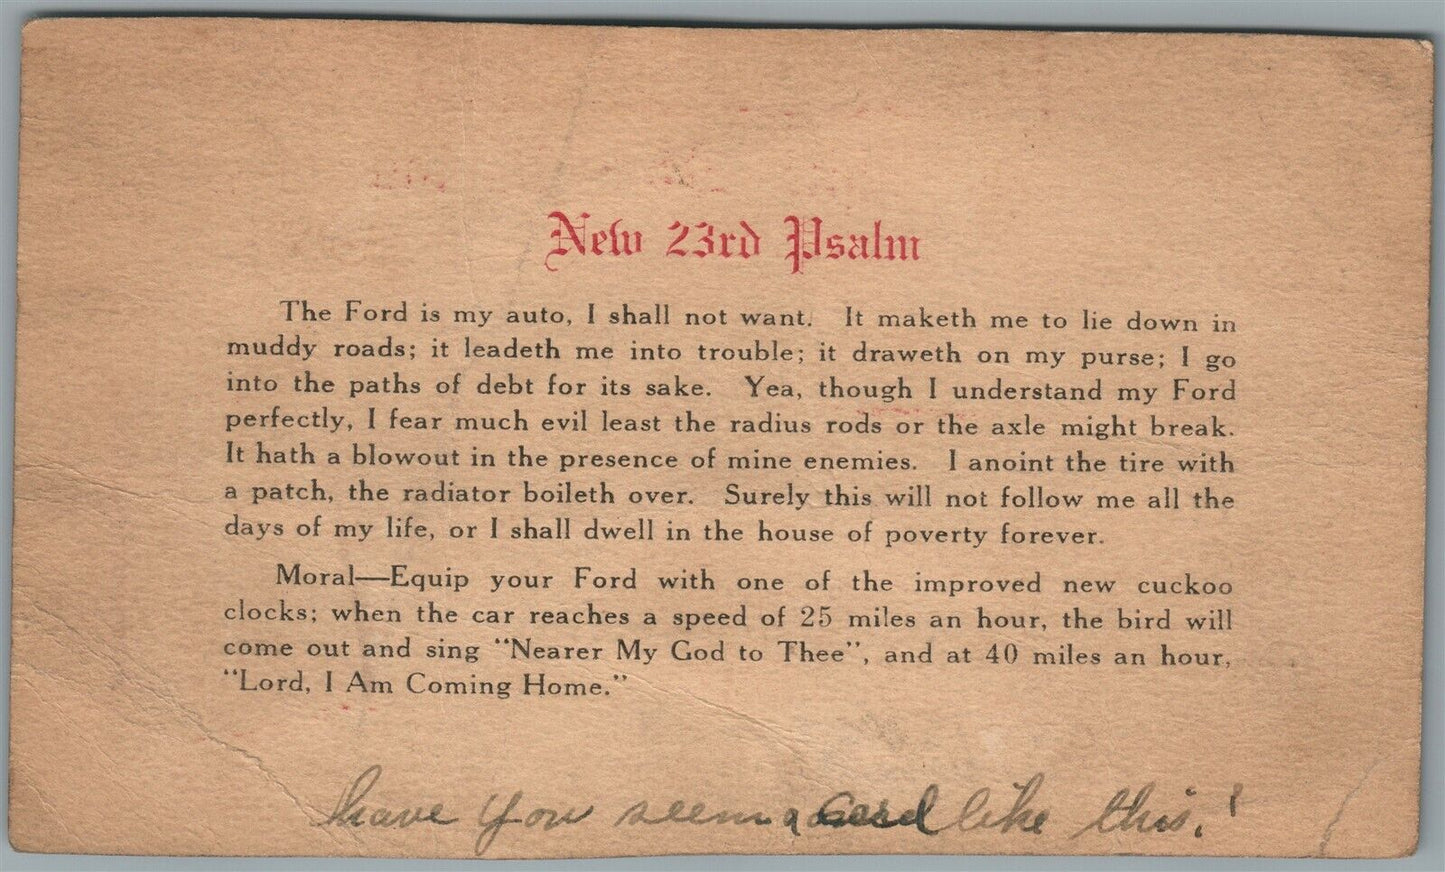 New 23rd Psalm
The Ford is my auto, I shall not want. It maketh me to lie down in
muddy roads; it leadeth me into trouble; it draweth on my purse; I go
into the paths of debt for its sake. Yea, though I understand my Ford
perfectly, I fear much evil least the radius rods or the axle might break.
It hath a blowout in the presence of mine enemies. I anoint the tire with
a patch, the radiator boileth over. Surely this will not follow me all the
days of my life, or I shall dwell in the house of poverty forever.
Moral—Equip your Ford with one of the improved new cuckoo
clocks; when the car reaches a speed of 25 miles an hour, the bird will
come out and sing "Nearer My God to Thee", and at 40 miles an hour,
"Lord, I Am Coming Home."
have you seem a card like this.!